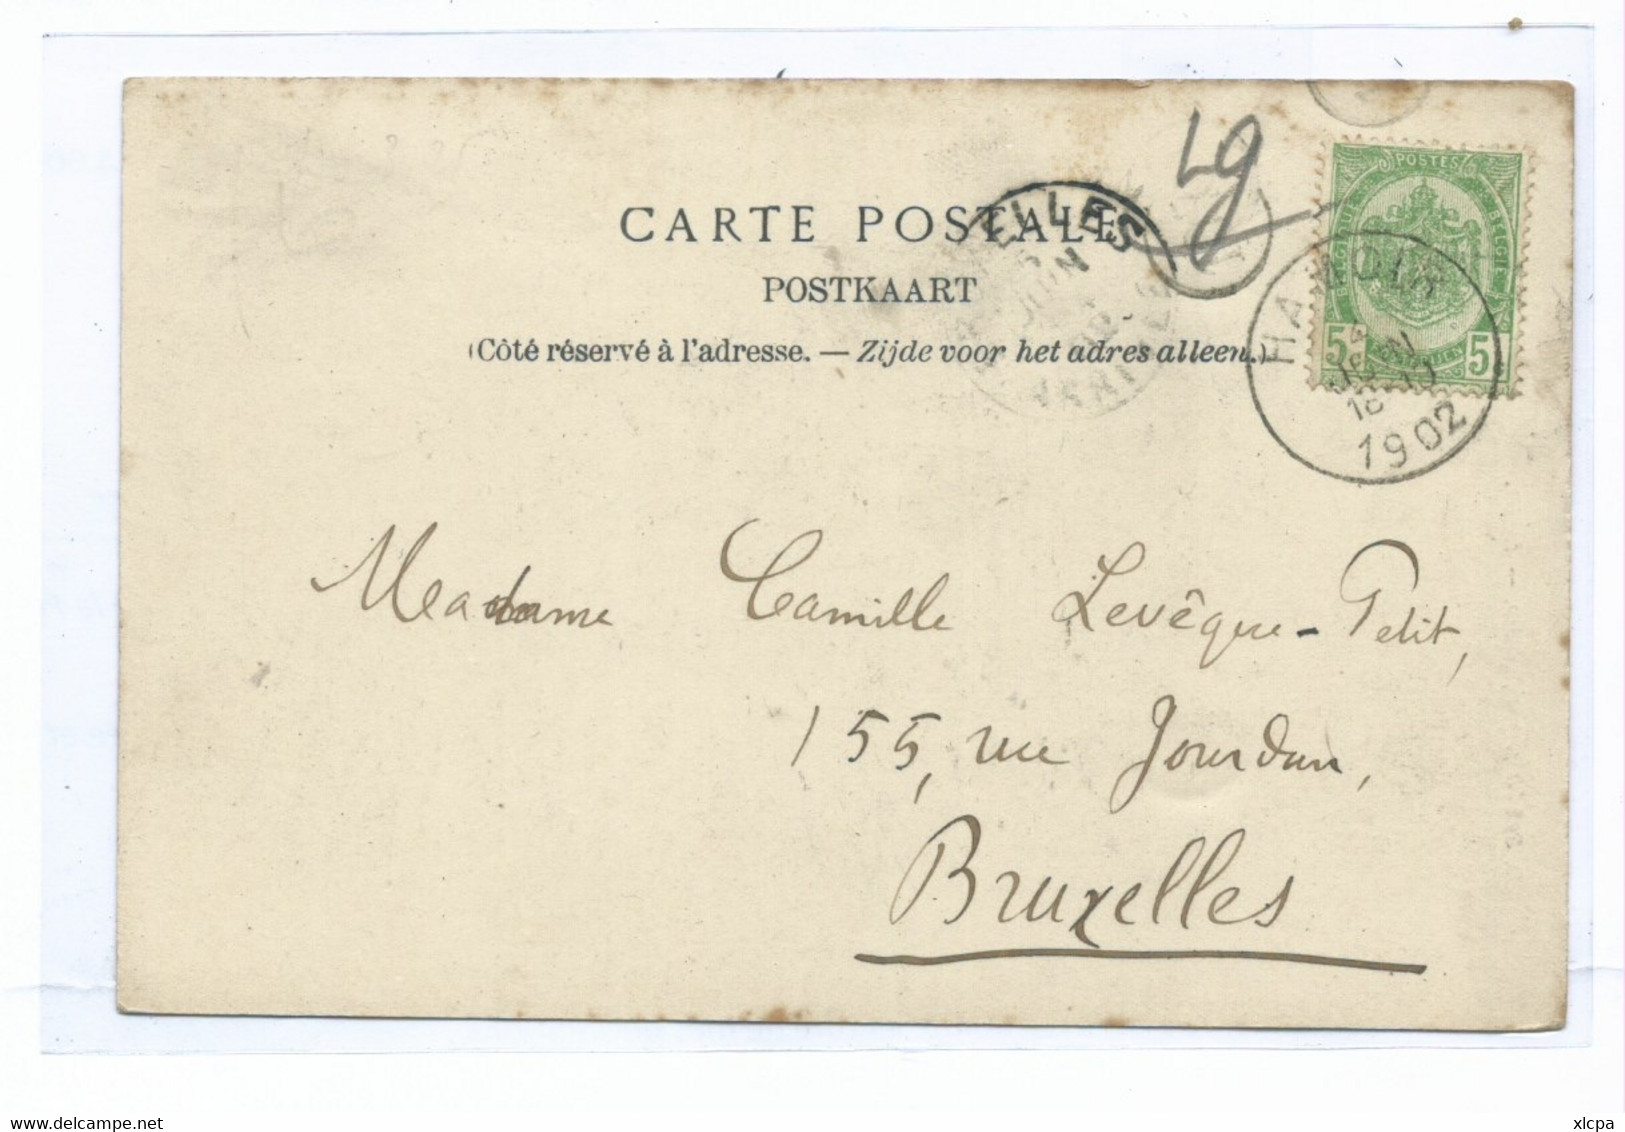 Lg
CARTE POSTALE
POSTKAART
(Côté réservé à l'adresse. — Zijde voor het adres alleen.)
POSTES
5 5
HAMOIR
1902
JUIN
Madame Camille Levêque-Petit,
155, rue Jourdan,
Bruxelles
delcampe.net
xlcpa